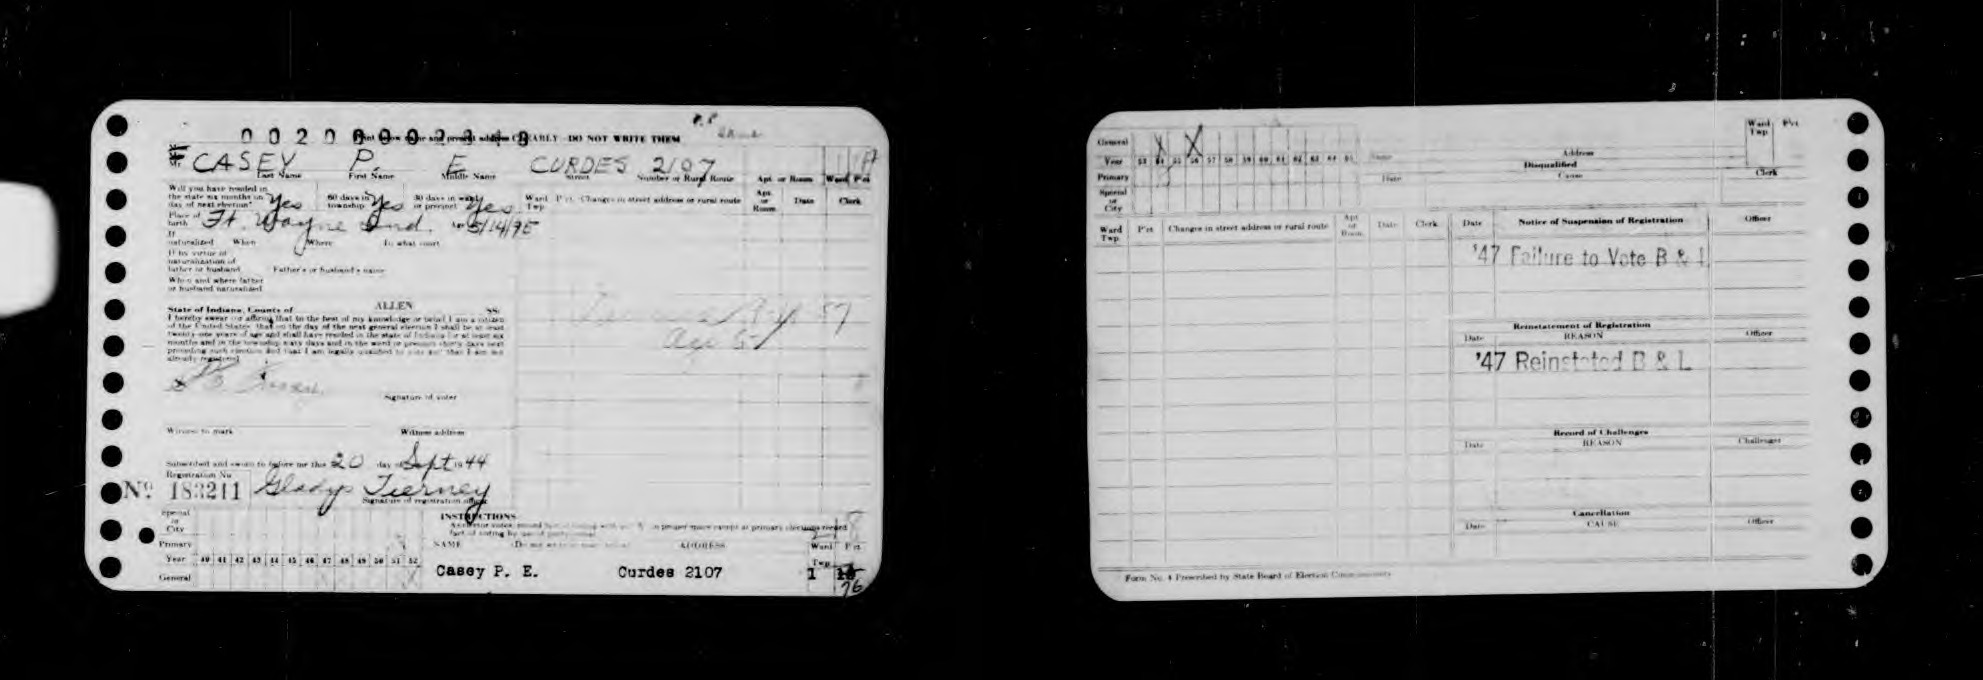 0020000
Print below name and present address CLEARLY - DO NOT WRITE THEM
Mr. CASEY P. E. CURDES 2107
Last Name First Name Middle Name Street Number or Rural Route Apt. or Room Ward Pct
Will you have resided in the state six months on day of next election? Yes 60 days in township Yes 30 days in ward or precinct Yes
Ward Twp. P'ct. Changes in street address or rural route Apt. or Room Date Clerk
Place of birth Ft. Wayne Ind. 5/14/95
If naturalized When Where In what court
If by virtue of naturalization of father or husband Father's or husband's name
When and where father or husband naturalized
State of Indiana, County of ALLEN SS:
I hereby swear or affirm that to the best of my knowledge or belief I am a citizen
of the United States, that on the day of the next general election I shall be at least
twenty-one years of age and shall have resided in the state of Indiana for at least six
months and in the township sixty days and in the ward or precinct thirty days next
preceding such election and that I am legally qualified to vote and that I am not
already registered
57
Signature of voter
Witness to mark Witness address
Subscribed and sworn to before me this 20 day of Sept 1944
Registration No.
No. 183211 Gladys Tierney
Signature of registration officer
Special or City
Primary
Year 40 41 42 43 44 45 46 47 48 49 50 51 52
General
INSTRUCTIONS
NAME ADDRESS Ward P'ct
Twp.
Casey P. E. Curdes 2107 1
76
General
Year 53 54 55 56 57 58 59 60 61 62 63 64 65
Primary
Special or City
Name Address Ward Twp. P'ct
Disqualified
Date Cause Clerk
Ward Twp. P'ct Changes in street address or rural route Apt. or Room Date Clerk
Date Notice of Suspension of Registration Officer
'47 Failure to Vote B & L
Reinstatement of Registration
Date REASON Officer
'47 Reinstated B & L
Record of Challenges
Date REASON Challenger
Cancellation
Date CAUSE Officer
Form No. 4 Prescribed by State Board of Election Commissioners